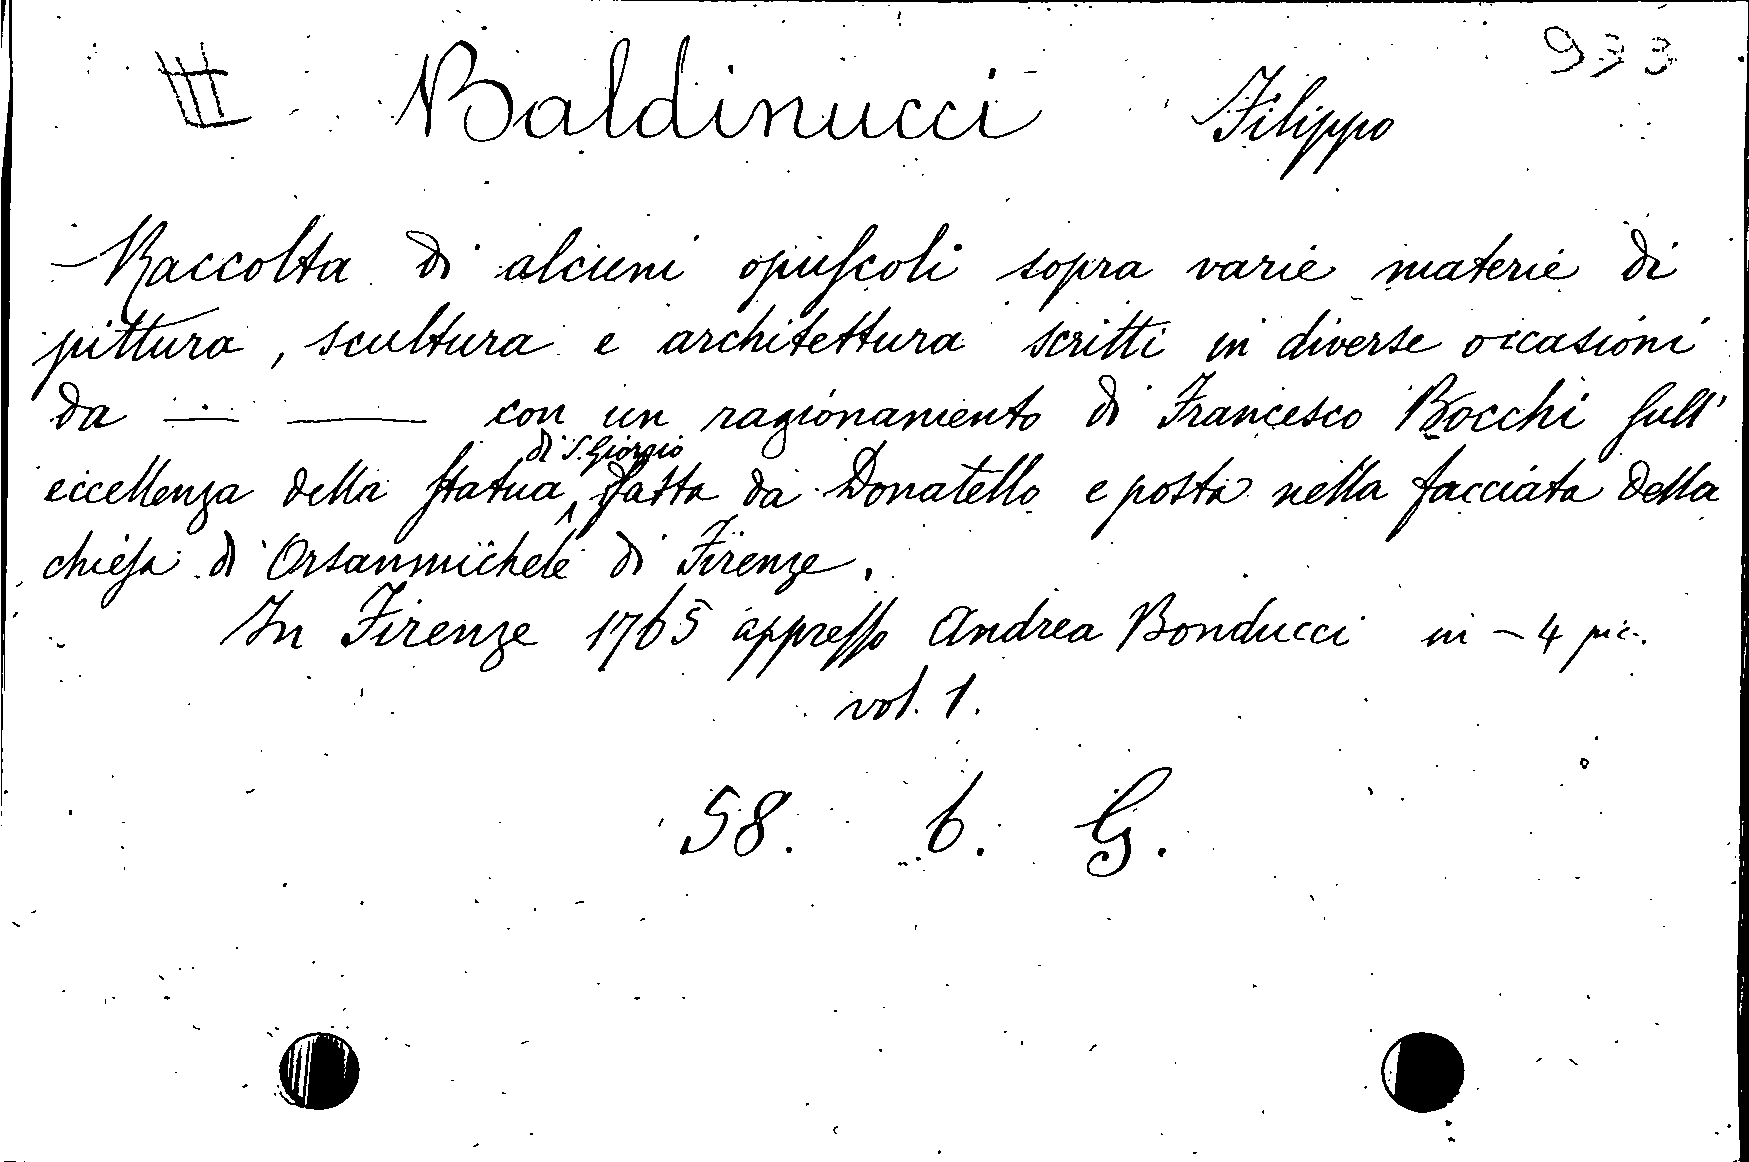 933
III Baldinucci Filippo
Raccolta di alcuni opuſcoli sopra varie materie di
pittura, scultura e architettura scritti in diverse occasioni
da — —— con un ragionamento di Francesco Bocchi ſull'
di S. Giorgio
eccellenza della ſtatua, fatta da Donatello e posta nella facciata della
chieſa di Orsanmichele di Firenze.
In Firenze 1765 appreſſo Andrea Bonducci in - 4 pic.
vol. 1.
58. 6. G.